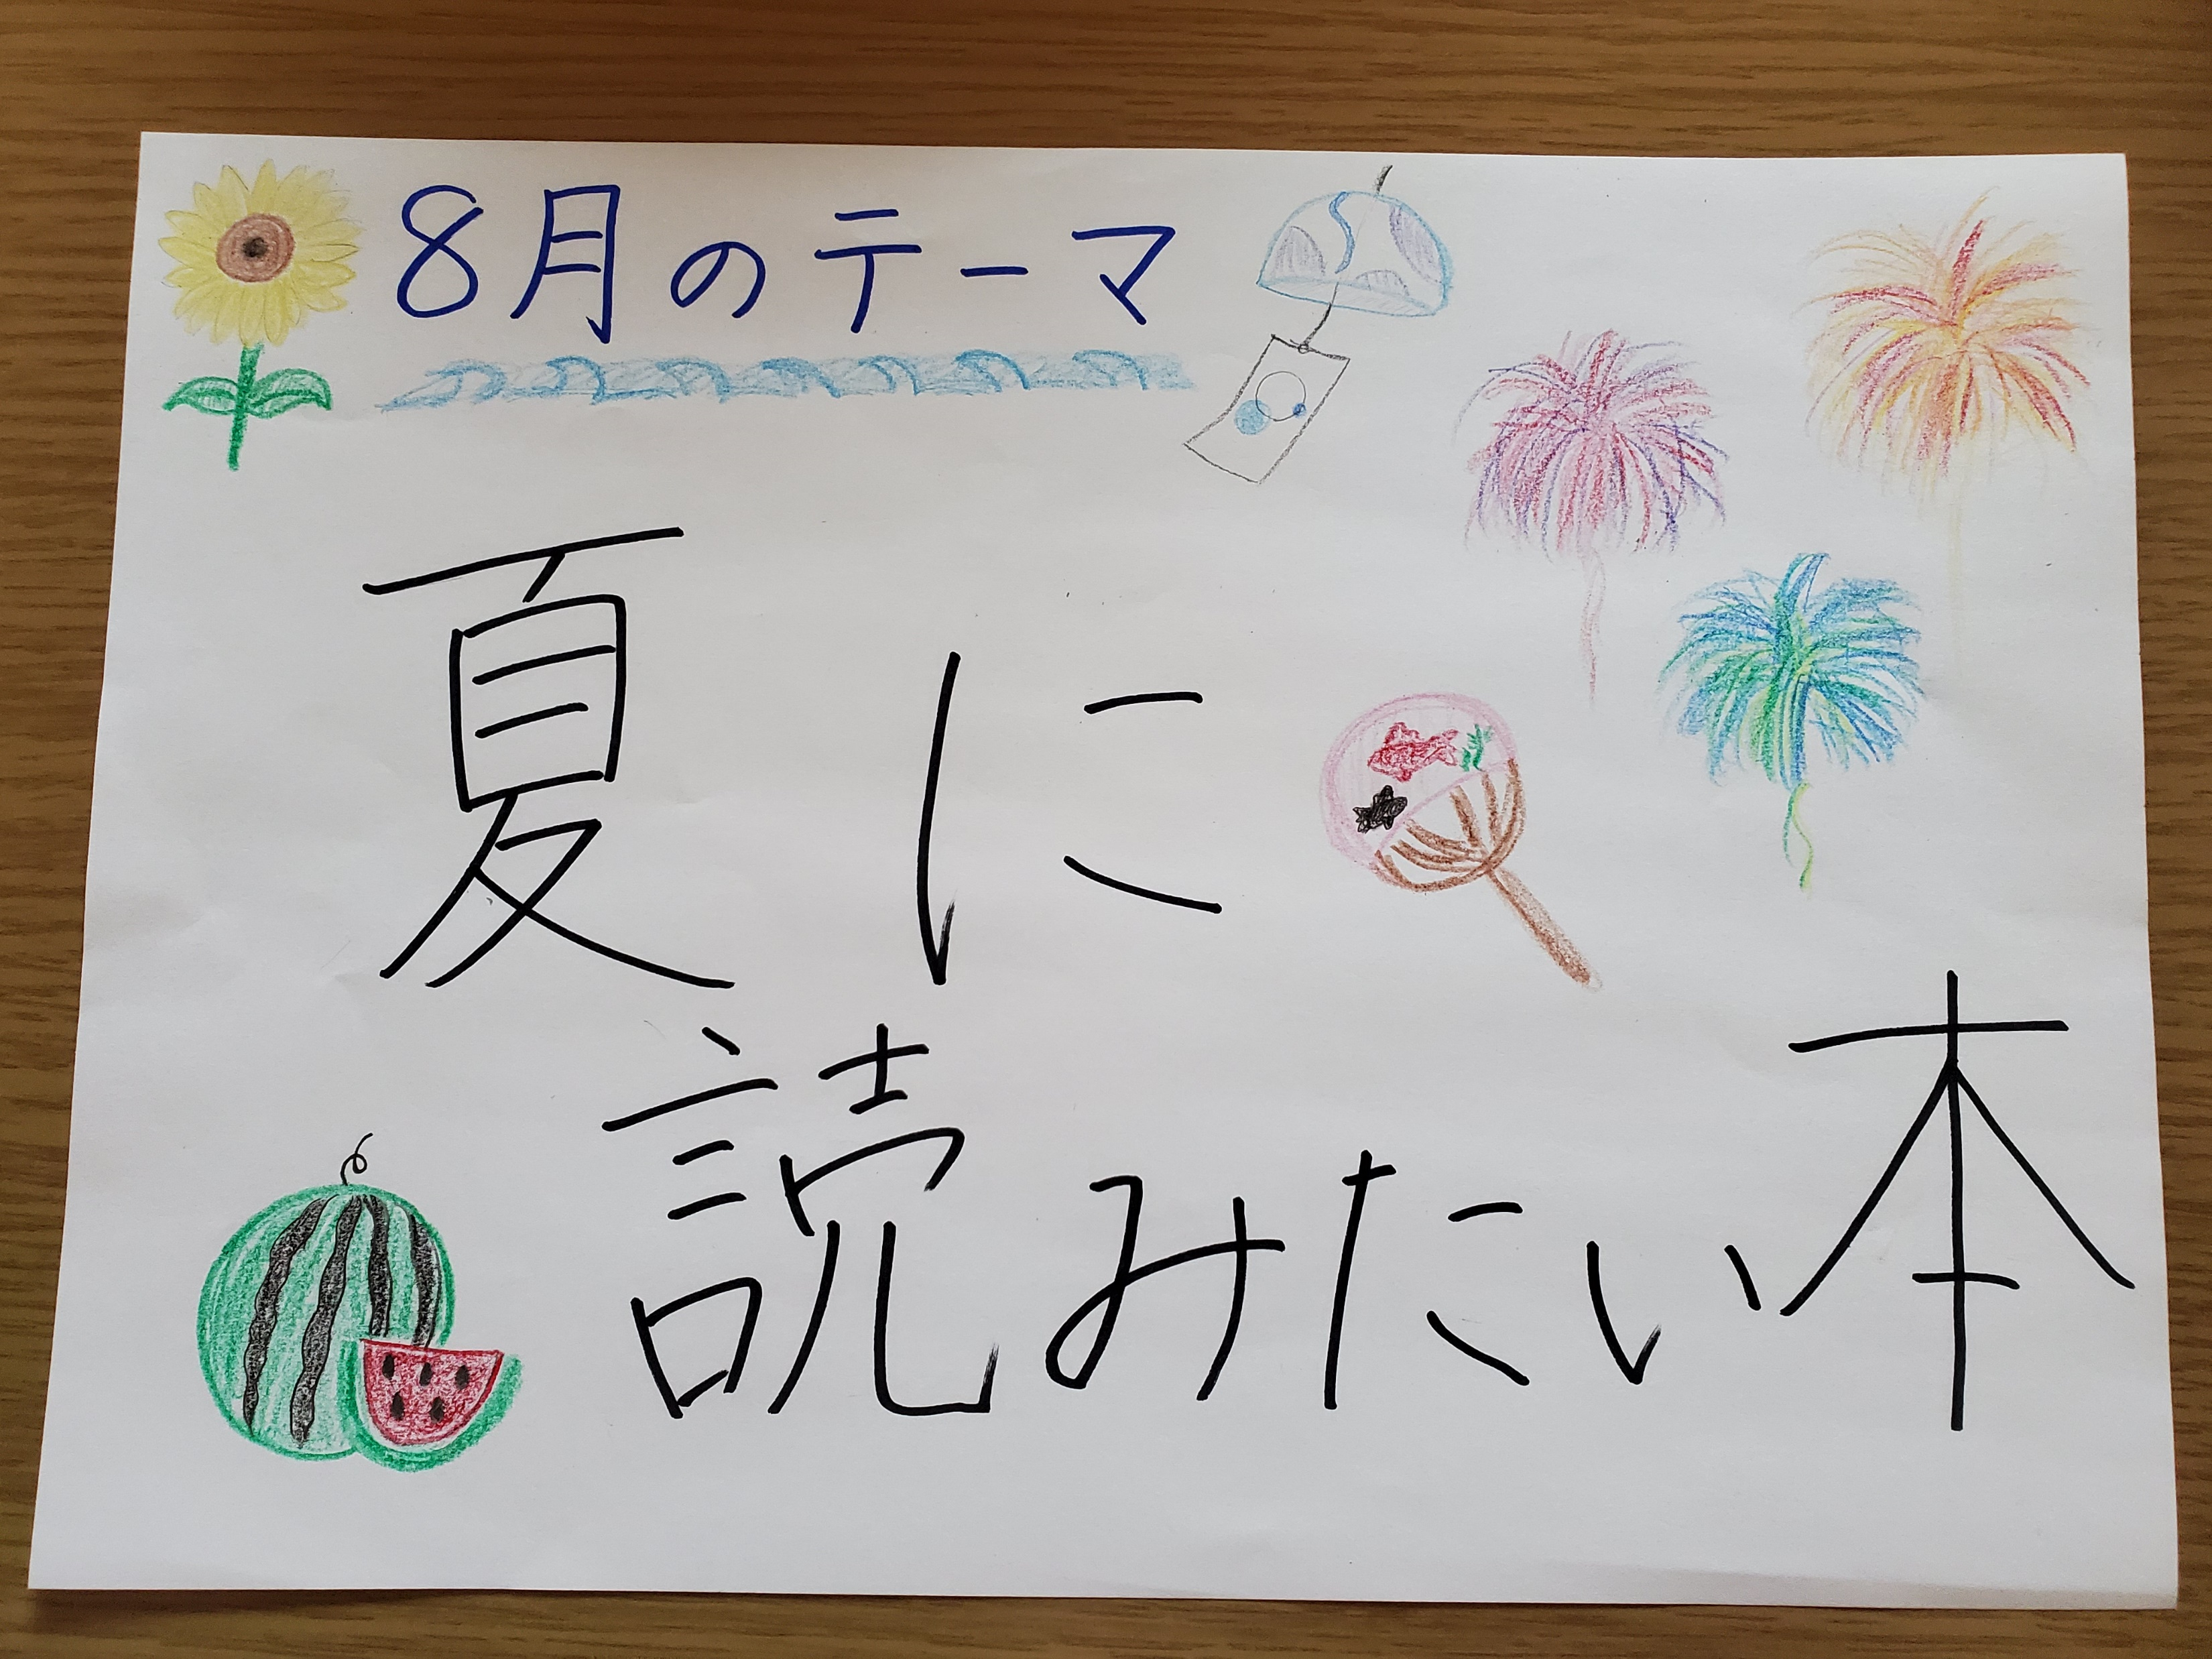 8月のテーマ
夏に
読みたい本